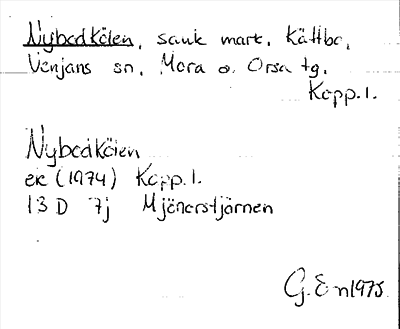 Nybodkölen, sank mark, Kättbo,
Venjans sn, Mora o. Orsa tg.
Kopp.l.
Nybodkölen
ek (1974) Kopp.l.
13 D 7j Mjönarstjärnen
G. E-n 1975.